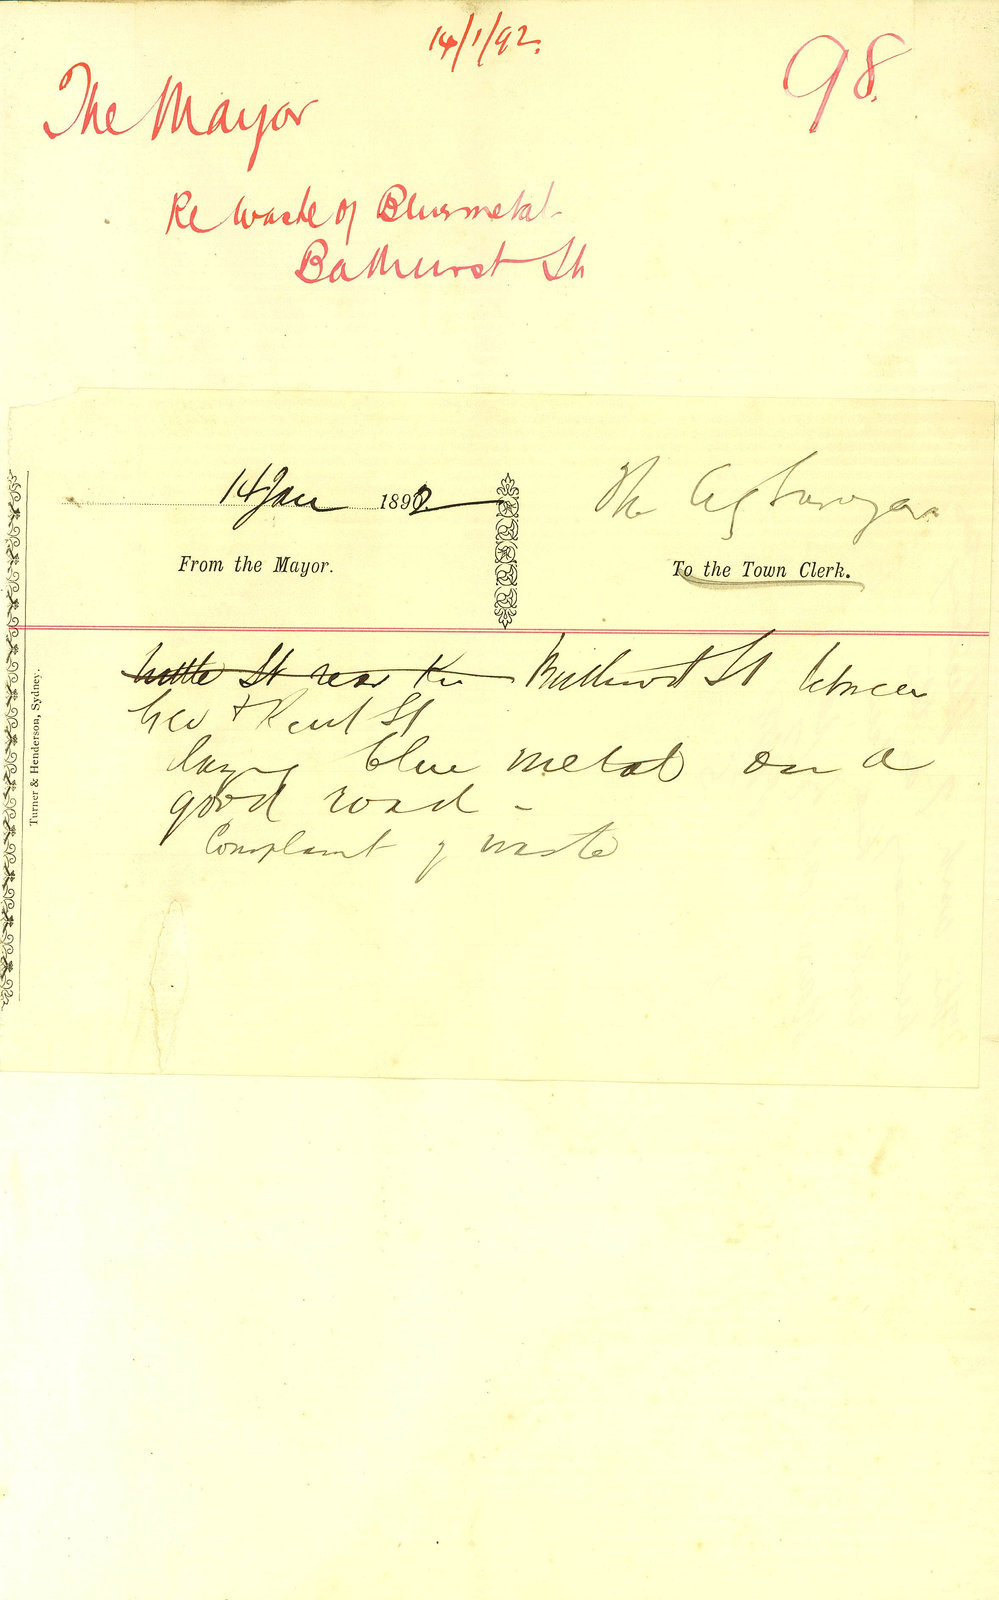 14/1/92.
98.
The Mayor
Re waste of Bluemetal
Bathurst St
14 Jan 1892
The City Surveyor
From the Mayor.
To the Town Clerk.
St near Bathurst St between
Geo & Kent St
laying blue metal on a
good road -
Complaint of waste
Turner & Henderson, Sydney.